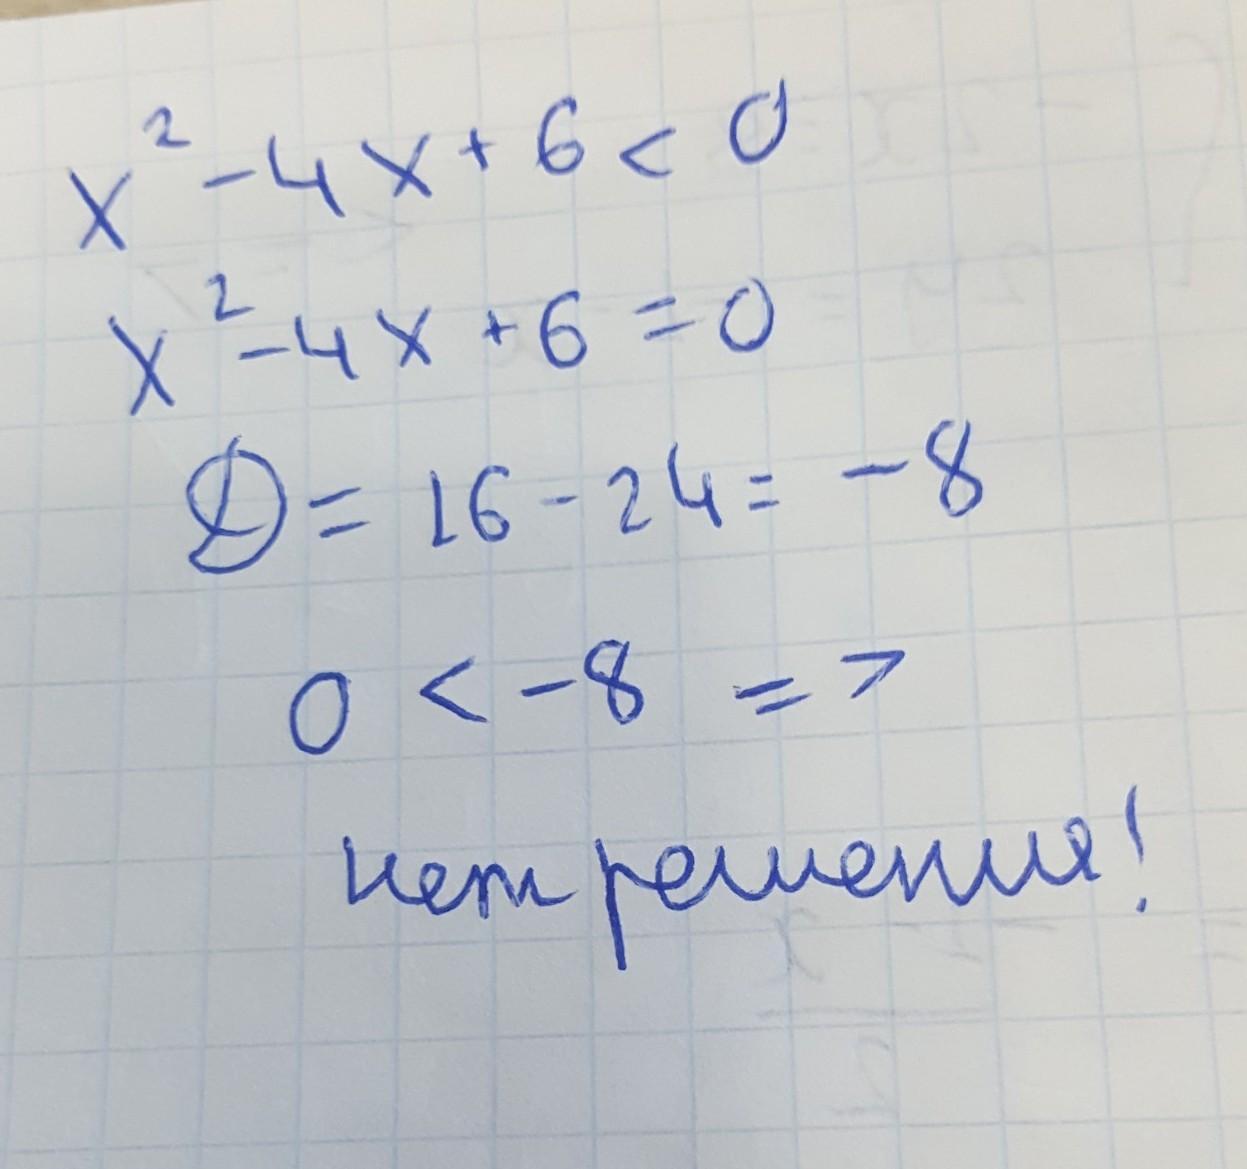 x² - 4x + 6 < 0
x² - 4x + 6 = 0
D = 16 - 24 = -8
0 < -8 =>
нет решения!